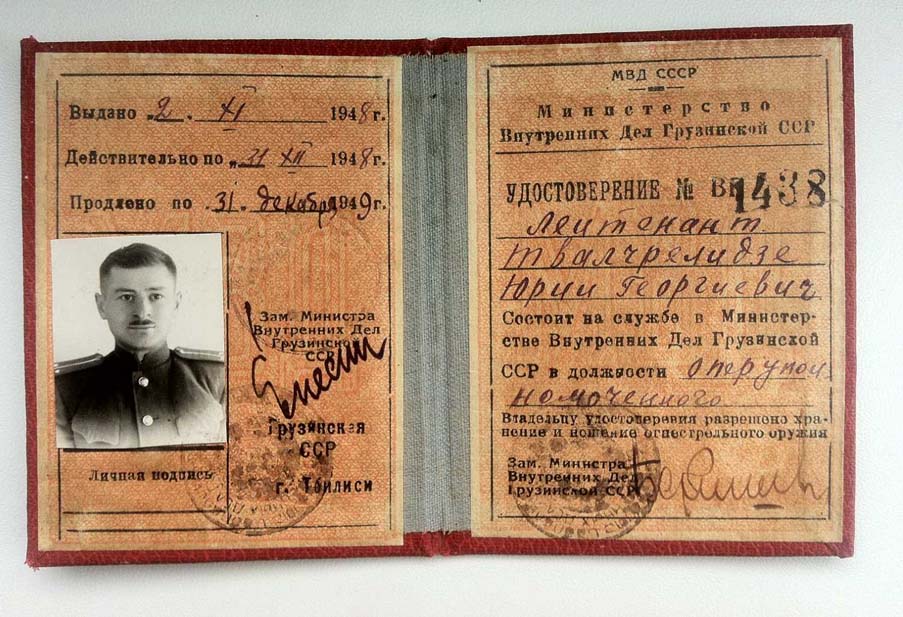 Выдано „2“ XI 1948 г.
Действительно по „31“ XII 1948 г.
Продлено по „31“ декабря 1949 г.
Зам. Министра
Внутренних Дел
Грузинской
ССР
Грузинская
ССР
Личная подпись
г. Тбилиси
МВД СССР
Министерство
Внутренних Дел Грузинской ССР
УДОСТОВЕРЕНИЕ № ВГ 1438
Лейтенант
Твалчрелидзе
Юрий Георгиевич
Состоит на службе в Министер-
стве Внутренних Дел Грузинской
ССР в должности оперупол-
номоченного
Владельцу удостоверения разрешено хра-
нение и ношение огнестрельного оружия
Зам. Министра
Внутренних Дел
Грузинской ССР